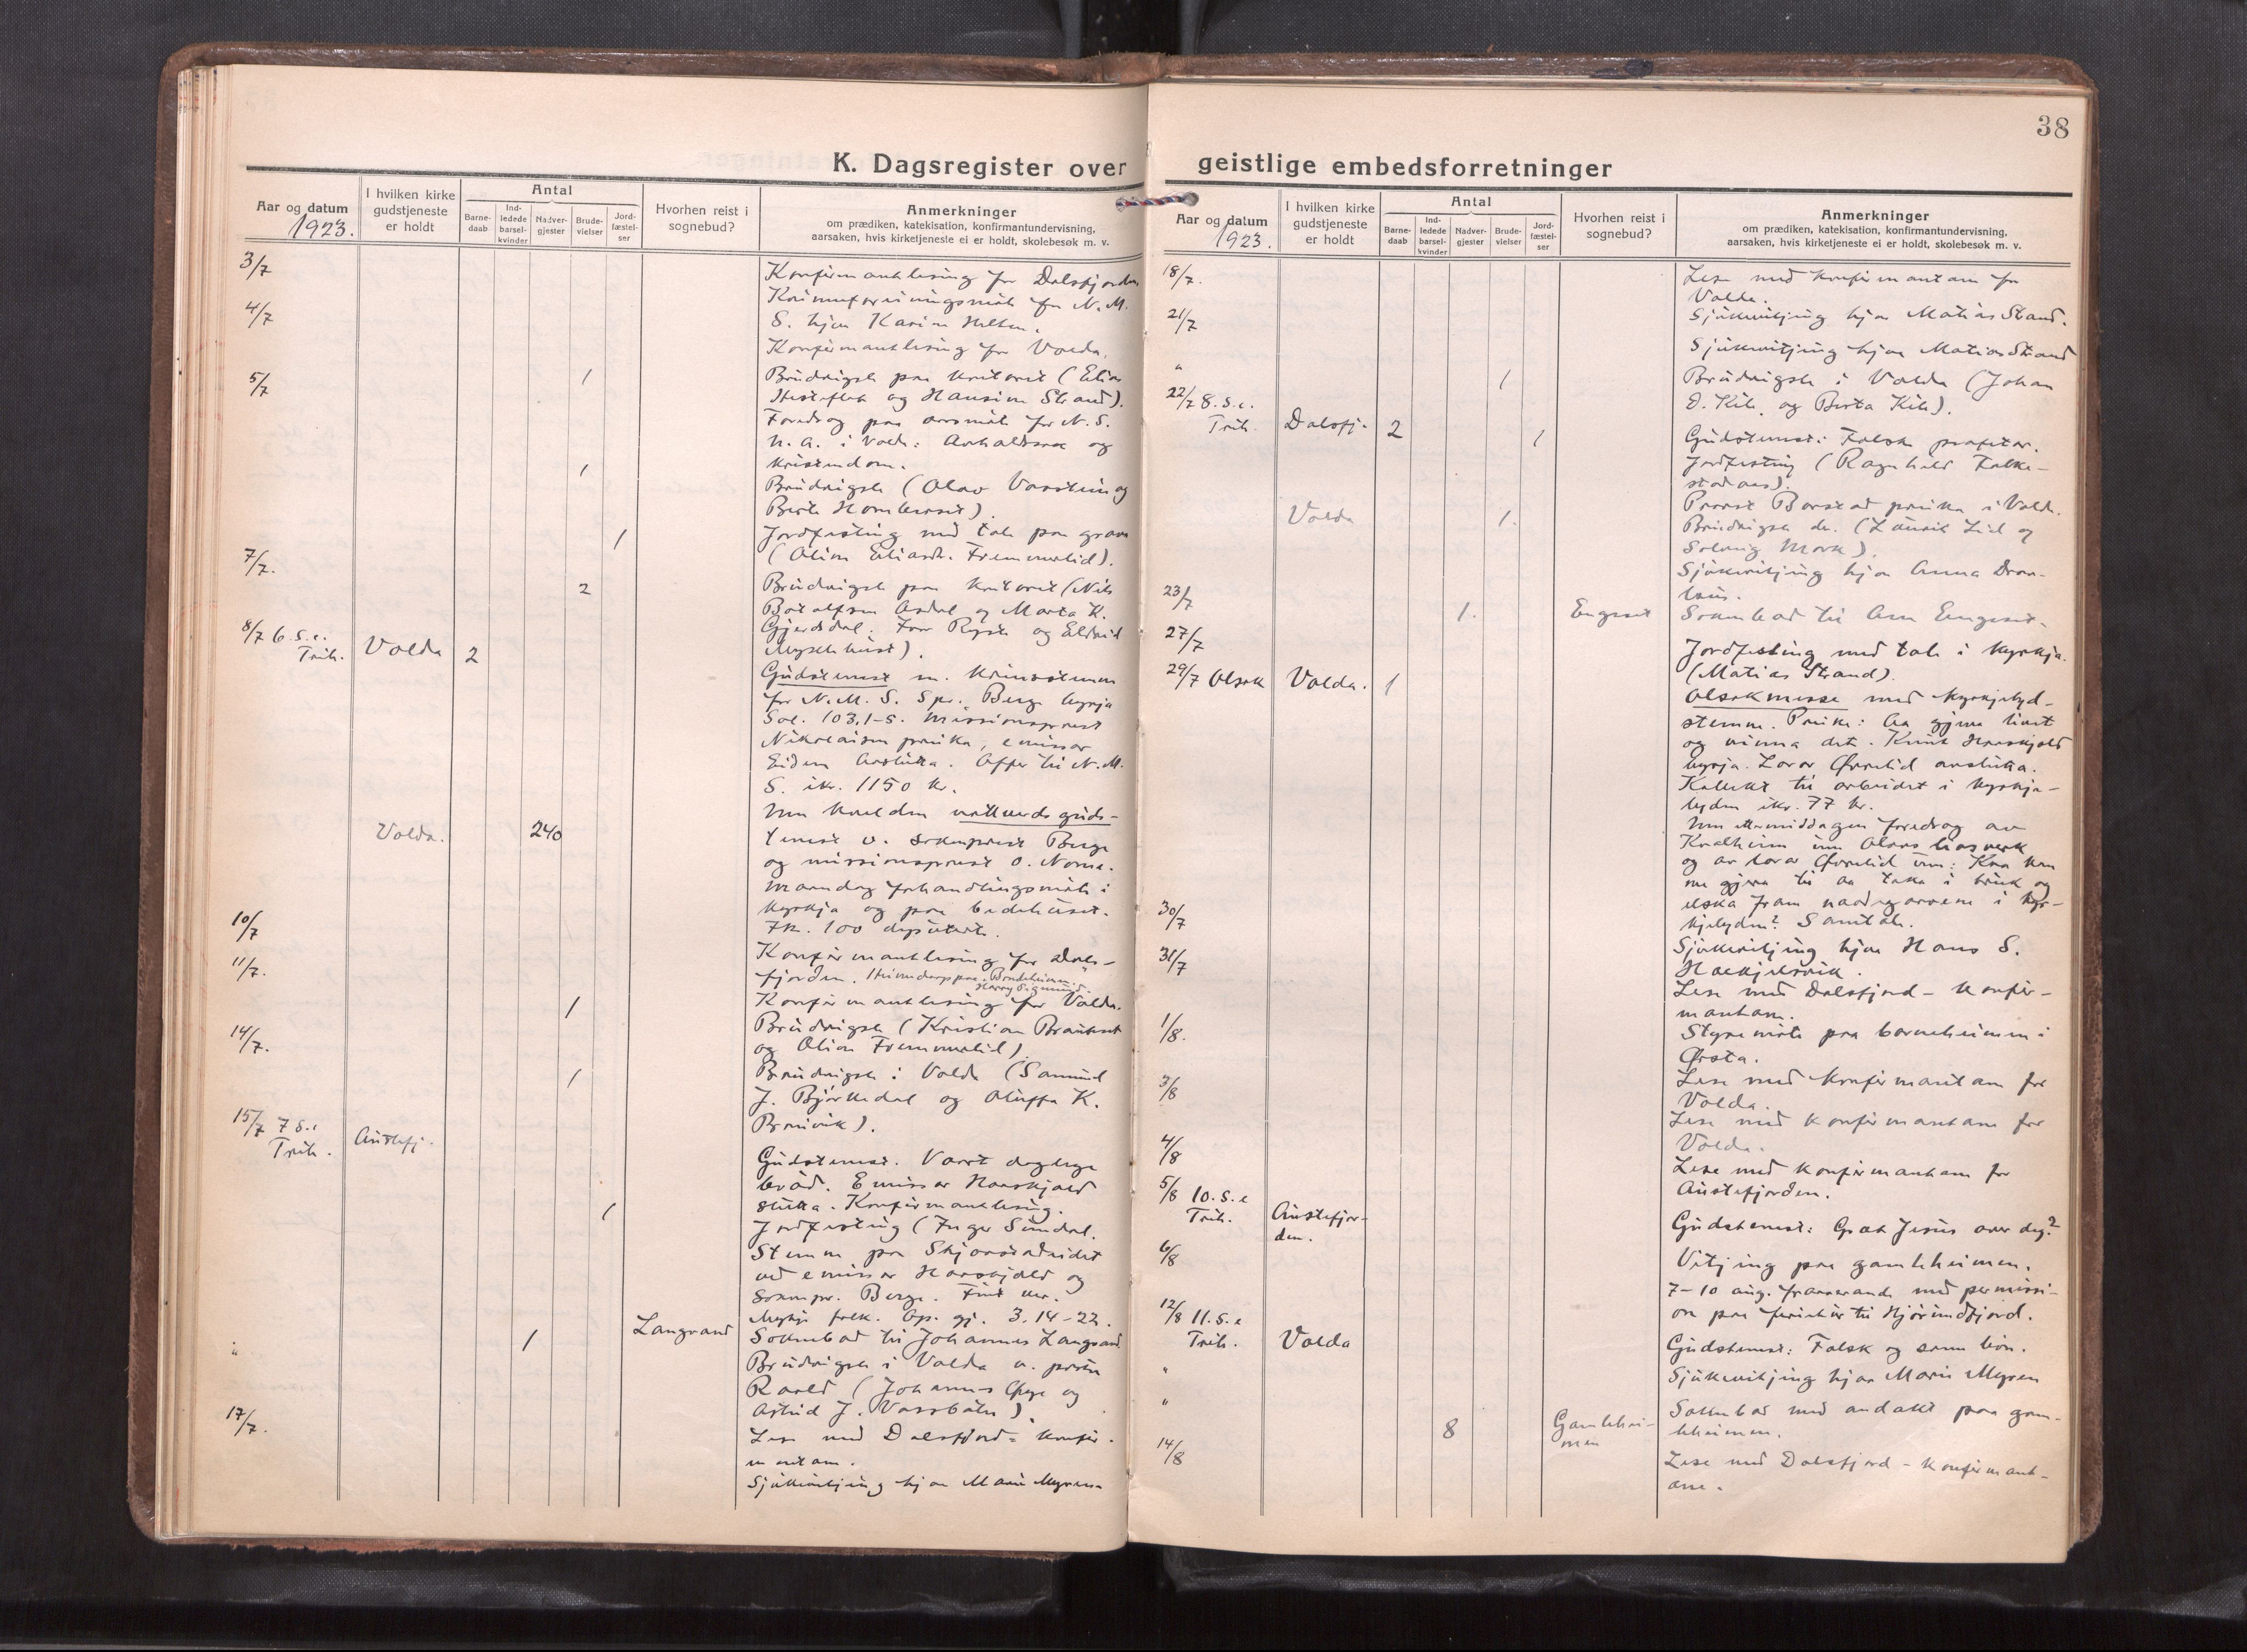 38
K. Dagsregister over
geistlige embedsforretninger
Aar og datum
1923.
I hvilken kirke
gudstjeneste
er holdt
Antal
Barne-
daab
Ind-
ledede
barsel-
kvinder
Nadver-
gjester
Brude-
vielser
Jord-
fæstel-
ser
Hvorhen reist i
sognebud?
Anmerkninger
om prædiken, katekisation, konfirmantundervisning,
aarsaken, hvis kirketjeneste ei er holdt, skolebesøk m. v.
3/7
Konfirmantlesing for Dalsfjorden
4/7
S. hjaa Karin
Konfirmantlesing for Volda.
5/7
1
Brudvigsle paa kontoret (Elias
og Hansine Strand).
Foredrag paa aarsmøte for N. S.
i Volda: Avhaldssak og
kristendom.
1
Brudvigsle (Olav Vasstein og
1
Jordfesting med tale paa grava
(Oline Eliasd. Fremmerlid).
7/7.
2
Brudvigsle paa kontoret (Nils
Botolfsen Aasdal og Marta K.
Gjerdsdal. og Eldrid
Myklebust).
8/7 6. s. e.
Trih.
Volda
2
Gudstenest m.
for N. M. S. Spr. Berge byrja
Sal. 103,1-5. Missionsprest
Nikolaisen preika, emissær
Eidem avslutta. Offer til N. M.
S. ikr. 1150 kr.
Volda.
240
Um kvelden nattverdsguds-
tenest v. sokneprest Berge
og missionsprest O.
Maandag forhandlingsmøte i
kyrkja og paa bedehuset.
100 deputerte.
10/7
Konfirmantlesing for Dals-
fjorden. Heimedaap paa
Harry Sigmund.
11/7.
Konfirmantlesing for Volda.
1
Brudvigsle (Kristian
og Olina Fremmerlid)
14/7.
1
Brudvigsle i Volda (Samuel
J. Bjørkedal og Oluffa K.
15/7 7 s. e
Trih.
Austefj.
Gudstenest. Vaart daglege
brød. Emissær Haaskjold
slutta. Konfirmantlesing.
1
Jordfesting (Inger Sundal.
Stemne paa
ved emissær Haaskjold og
Soknepr. Berge.
folk. Ap. gj. 3, 14-22.
"
1
Langvand
Soknebod til Johannes
Brudvigsle i Volda v. presten
(Johannes og
Astrid J. Vassbotn).
17/7.
Lese med Dalsfjord-konfir-
mantane.
Sjukevitjing hjaa Marie Myren.
Aar og datum
1923.
I hvilken kirke
gudstjeneste
er holdt
Antal
Barne-
daab
Ind-
ledede
barsel-
kvinder
Nadver-
gjester
Brude-
vielser
Jord-
fæstel-
ser
Hvorhen reist i
sognebud?
Anmerkninger
om prædiken, katekisation, konfirmantundervisning,
aarsaken, hvis kirketjeneste ei er holdt, skolebesøk m. v.
18/7.
Lese med konfirmantane for
Volda.
21/7
Sjukevitjing hjaa Matias Strand.
"
Sjukevitjing hjaa Matias Strand
1
Brudvigsle i Volda (Johan
D. Kile og Berta Kile).
22/7 8. s. e.
Trih.
Dalsfj.
2
1
Gudstenest: Falske profetar.
Jordfesting (Ragnhild Folke-
stadaas).
Volda
1.
Prost Barstad preika i Volda.
Brudvigsle do. (Laurit Lid og
Solveig Mork).
Sjukevitjing hjaa Anna
23/7
1.
Engeset
Soknebod til Engeset.
27/7
Jordfesting med tale i kyrkja.
(Matias Strand).
29/7 Olsok
Volda.
1
Olsokmesse med kyrkjelyd-
stemne. Preike: Aa gjeva livet
og vinna det. Knut Haaskjold
byrja. Lærar Øvrelid avslutta.
Kollekt til arbeidet i kyrkje-
lyden ikr. 77 kr.
Um ettermiddagen foredrag av
Kvalheim um Olavs livsverk
og av lærar Øvrelid um: Kva kan
me gjera til aa taka i bruk og
elska fram naadegaavene i kyr-
kjelyden? Samtale.
30/7
Sjukevitjing hjaa Hans S.
31/7
Lese med Dalsfjord-konfir-
mantane.
1/8.
Styremøte paa barneheimen i
Ørsta.
3/8
Lese med konfirmantane for
Volda.
Lese med konfirmantane for
Volda.
4/8
Lese med konfirmantane for
Austefjorden.
5/8 10. s. e
Trih.
Austefjor-
den.
Gudstenest: Græt Jesus over deg?
6/8
Vitjing paa gamleheimen.
7-10 aug. fraaverande med permissi-
on paa ferietur til Hjørundfjord.
12/8 11. s. e
Trih.
Volda
Gudstenest: Falsk og sann bøn.
"
Sjukevitjing hjaa Marie Myren
"
8
Gamlehei-
men
Soknebod med andakt paa gam-
leheimen.
14/8
Lese med Dalsfjord-konfirmant-
ane.